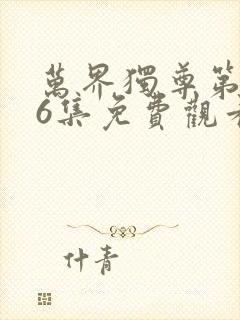 萬界獨尊第
6集免費觀看
什青